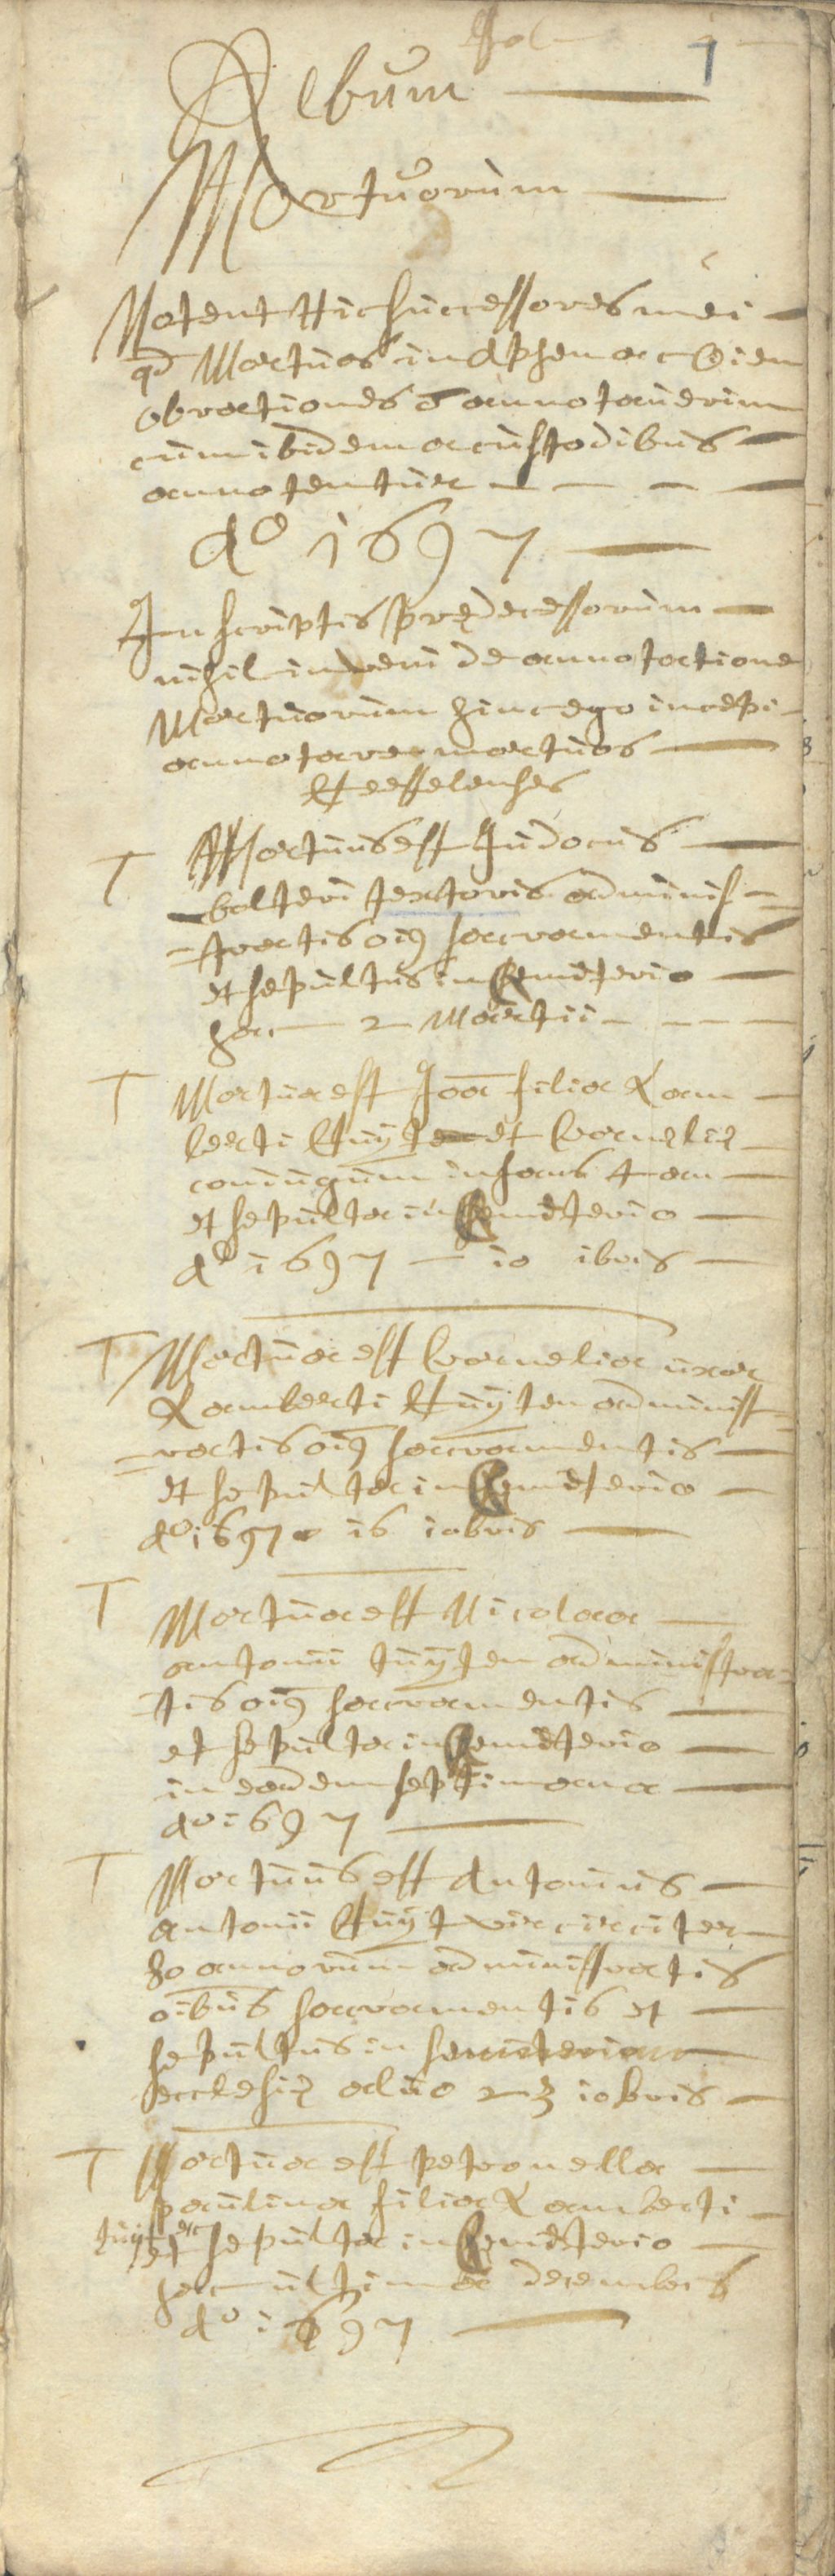 fol
1
Album
Mortuorum
Notent Hic Successores mei
qd Mortuos in
obrationes annotaverim
cum ibidem a custodibus
annotentur
Ao 1697
In scriptis prędecessorum
nihil inveni de annotatione
Mortuorum hinc ego incepi
annotare mortuos
Hesselenses
T Mortuus est Judocus
textoris adminis=
=tratis oibus sacramentis
et sepultus in Cemeterio
hac 2 Martii
T Mortua est Joa filia Lam
berti Huyten et Cornelię
coniugum infans
et sepulta in Cemeterio
Ao 1697 10 ibris
T Mortua est Cornelia uxor
Lamberti Huyten administ=
=ratis oibus sacramentis
et sepulta in Cemeterio
Ao 1697 16 iobris
T Mortua est Nicolaa
antonii Tuyten administra=
=tis oibus sacramentis
et sepulta in Cemeterio
in eadem septimana
Ao 1697
T Mortuus est Antonius
Antonii Huyt vir circiter
30 annorum administratis
oibus sacramentis et
sepultus in Cemeterio
ecclesię 23 iobris
T Mortua est petronella
paulina filia Lamberti
tuyten et sepulta in Cemeterio
hac ultima decembris
Ao 1697